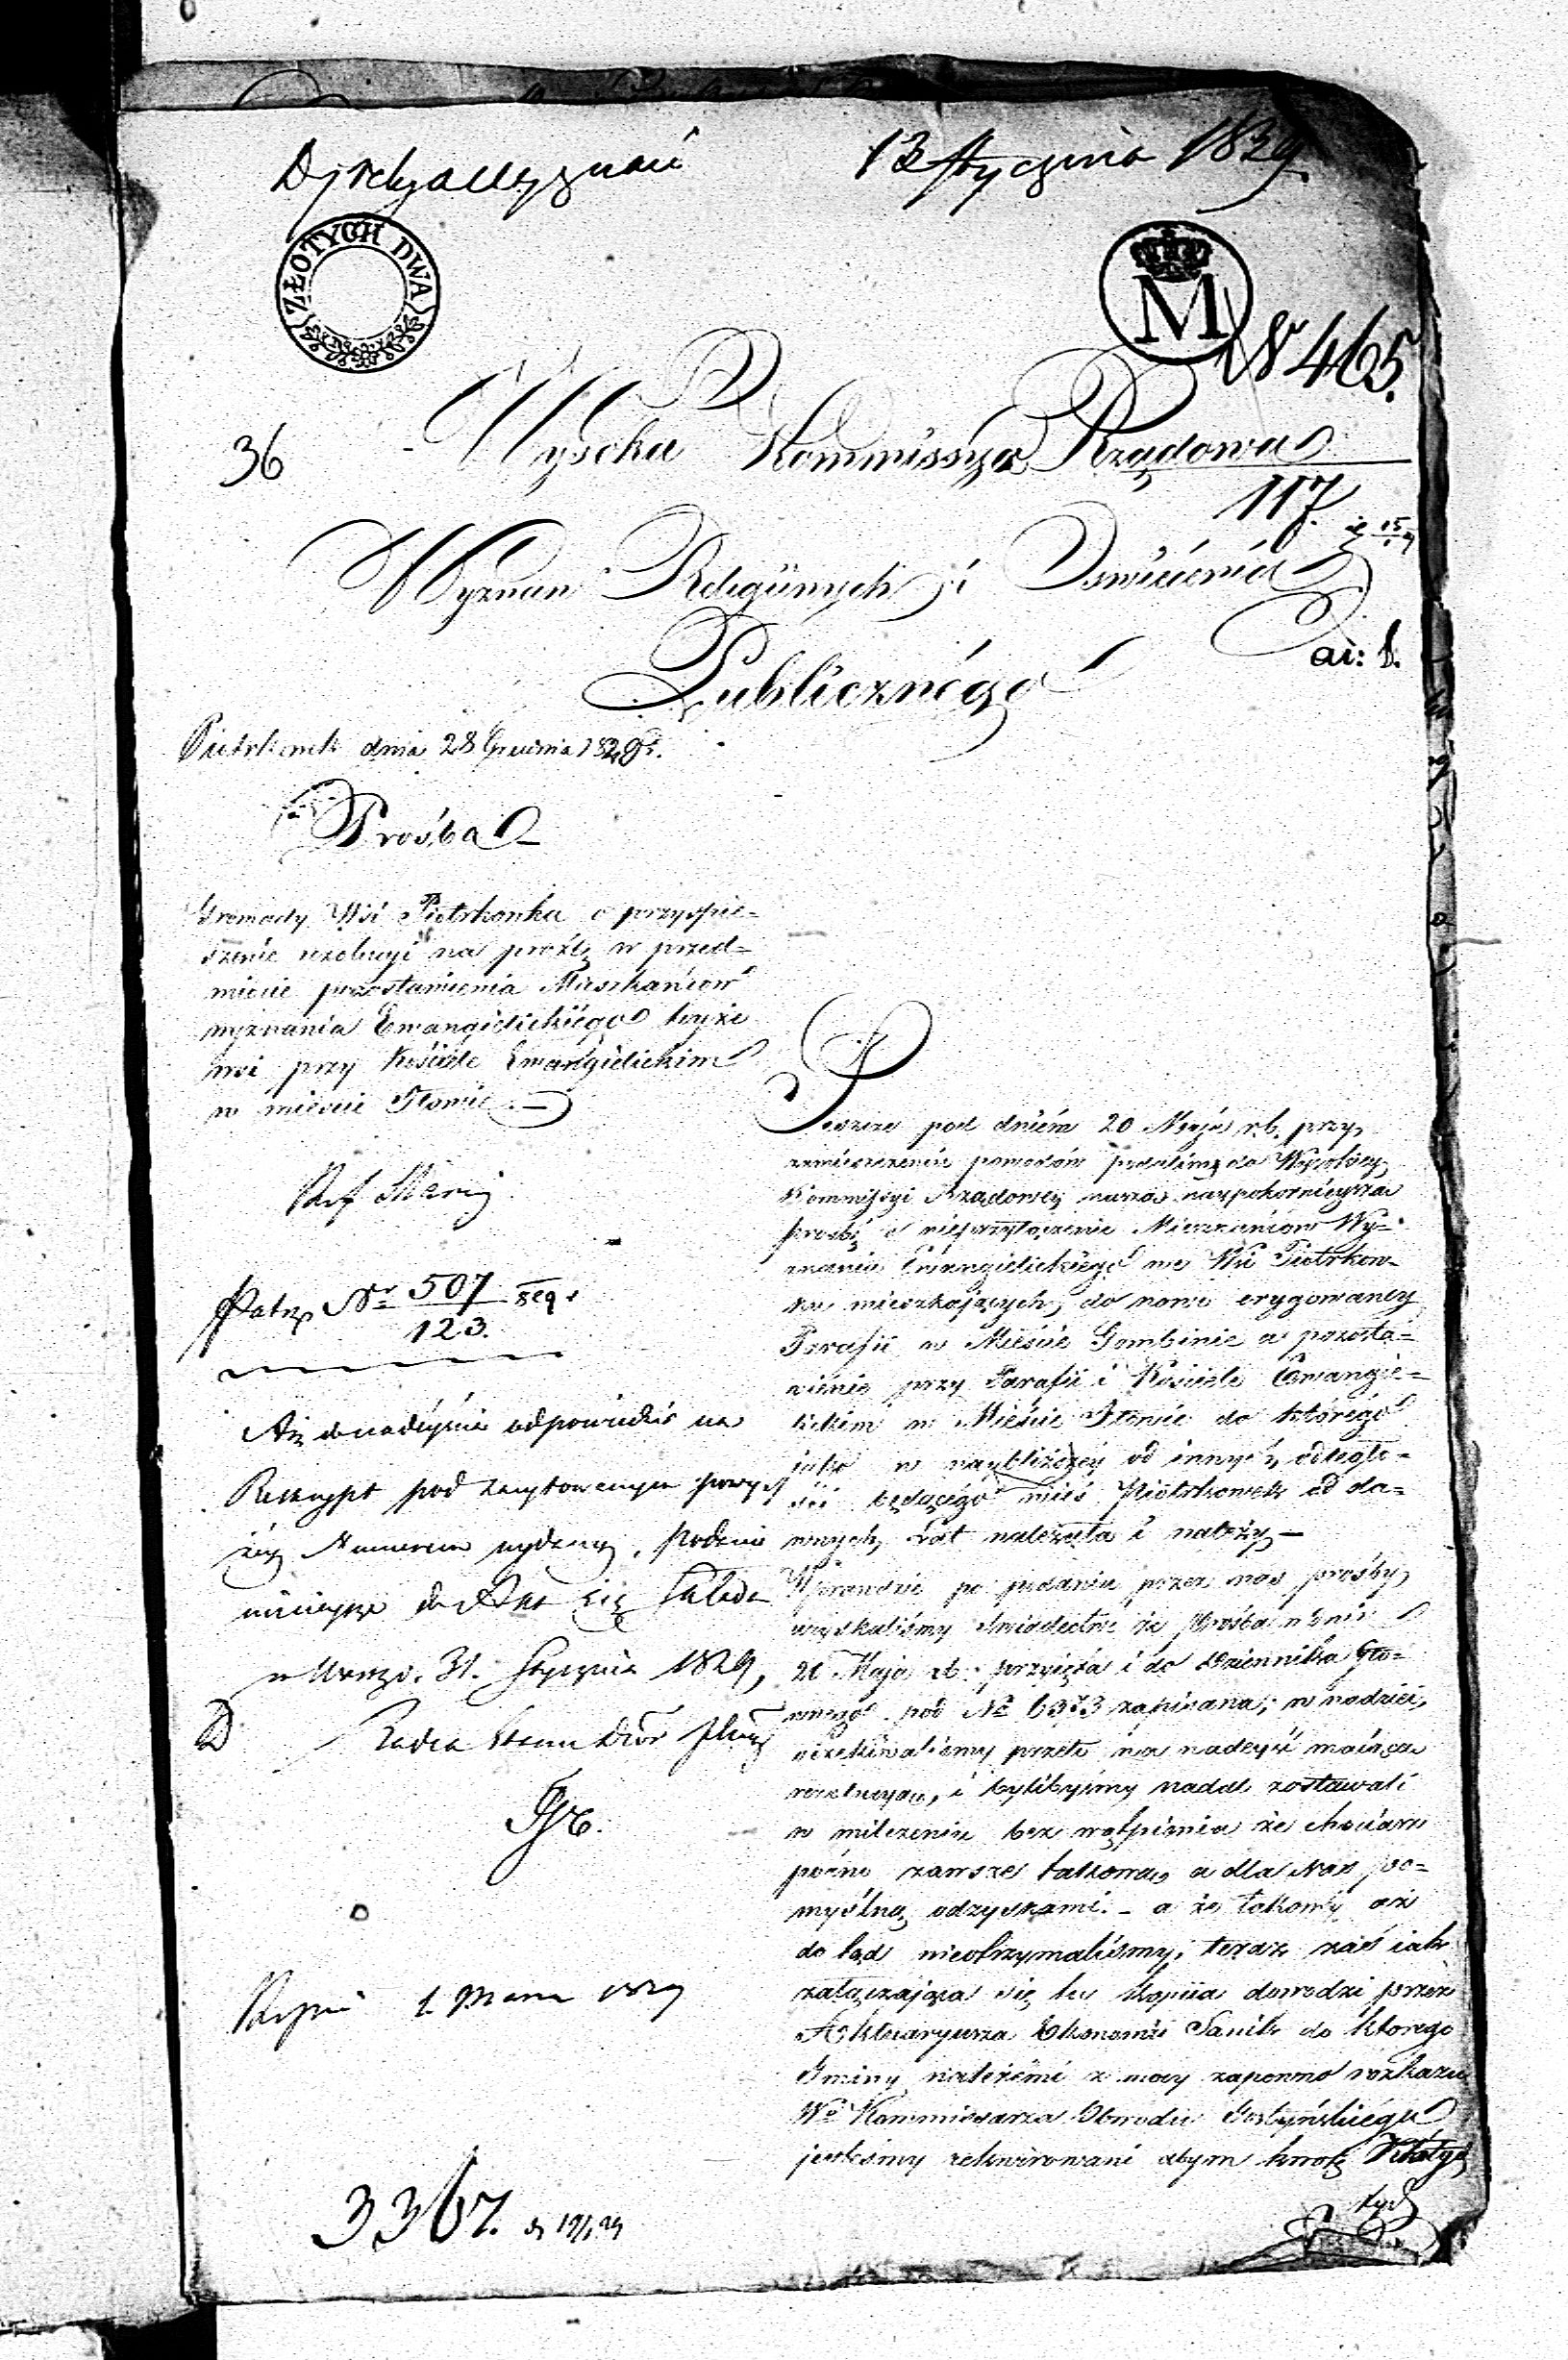 Dyrekcya Wyznań
13 Stycznia 1829.
ZŁOTYCH DWA
M
Nr 465.
36
Wysoka Kommissya Rządowa
117.
Wyznań Religiinych i Oswiécenia
Publicznégo
ai: b.
Piotrkowek dnia 28 Grudnia 1828 r.
Prośba
Gromady Wsi Piotrkowka o przyspie-
szenie rezolucyi na proźbę w przed-
miocie pozostawienia Mieszkańcow
wyznania Ewangielickiégo teyże
wsi przy Kościele Ewangielickim
w miescie Iłowie.—
Patrz Nr 507 seq.
123.
Aż do nadeyścia odpowiedzi na
Reskrypt pod zacytowanym powy
żey Numerem wydany, podanie
ninieysze do Akt się składa
w Warsz. 31. Stycznia 1829,
Radca Stanu Dÿr
1. Marca 1829
3367.
Jeszcze pod dniém 20 Maja r.b. przy
zamieszczeniu powodów podaliśmy do Wysokiey
Kommissyi Rządowey nasza naypokornieysza
proźbę o nieprzyłączenie Mieszkańcow Wy-
znania Ewangielickiégo we Wsi Piotrkow-
ku mieszkających, do nowo erygowaney
Parafii w Mieście Gombinie a pozosta-
wienie przy Parafii i Kościele Ewangie-
lickim w Mieście Iłowie do ktorégo
jako w naybliższey od innych odległo-
ści będącégo wieś Piotrkowek od da-
wnych lat należała i należy—
Wprawdzie po podaniu przez nas prośby
uzyskaliśmy świadectwo że prośba w dniu
20 Maja r.b. przyięta i do Dziennika Głó-
wnego pod No 6373 zapisana; w nadziei
oczekiwaliśmy przeto na nadeyść maiąca
rezolucyą, i bylibyśmy nadal zostawali
w milczeniu bez wątpienia że chociarz
pożno zawsze takową, a dla Nas po-
myślną odzyskamí.- a że takowéy aż
do tąd nieotrzymaliśmy, teraz zaś iak
załączająca się tu kopiia dowodzi przez
Aktuaryusza Ekonomii Sanik do ktorego
Gminy należémi z mocy zapewno rozkazu
Wo Kommissarza Obwodu Gostyńskiégo
jesteśmy rekwirowani abym kwotę Składek
tych